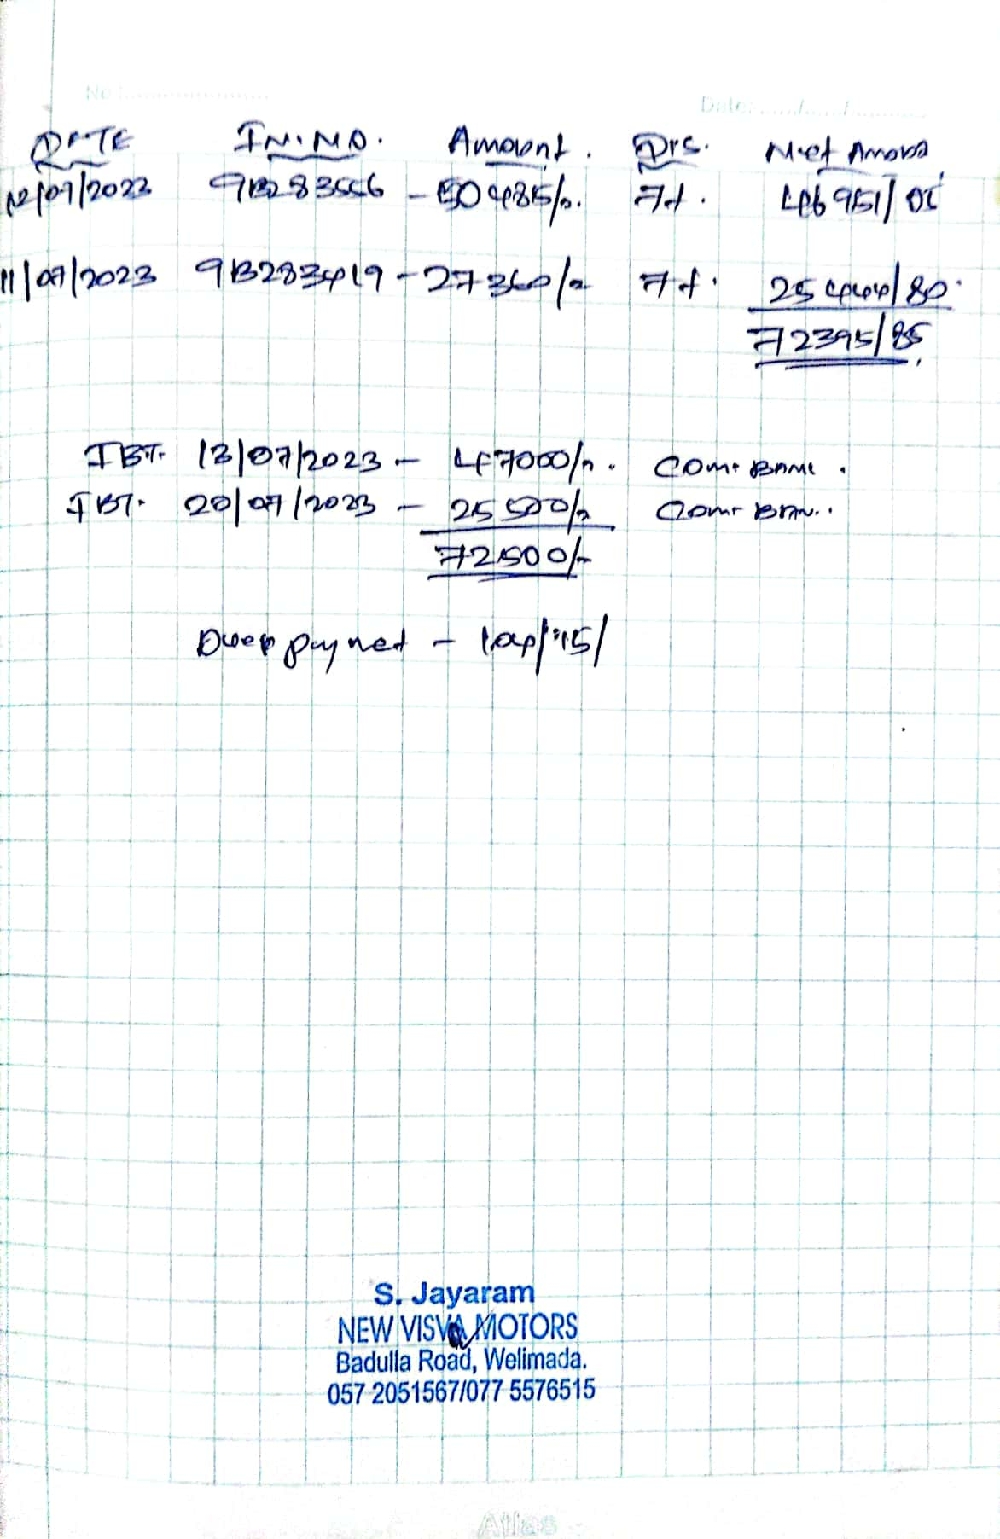 No:
Date: ....../....../......
DATE IN.NO. Amount. Dis. Net Amount
12/07/2023 9B283556 - 50485/-. 7%. 46951/05
11/07/2023 9B283419 - 27360/- 7%. 25444/80
72395/85
IBT. 13/07/2023 - 47000/-. Com. Bank.
IBT. 20/07/2023 - 25500/- Com. Ban..
72500/-
Over paymet - 104/15/
S. Jayaram
NEW VISVA MOTORS
Badulla Road, Welimada.
057 2051567/077 5576515
Atlas